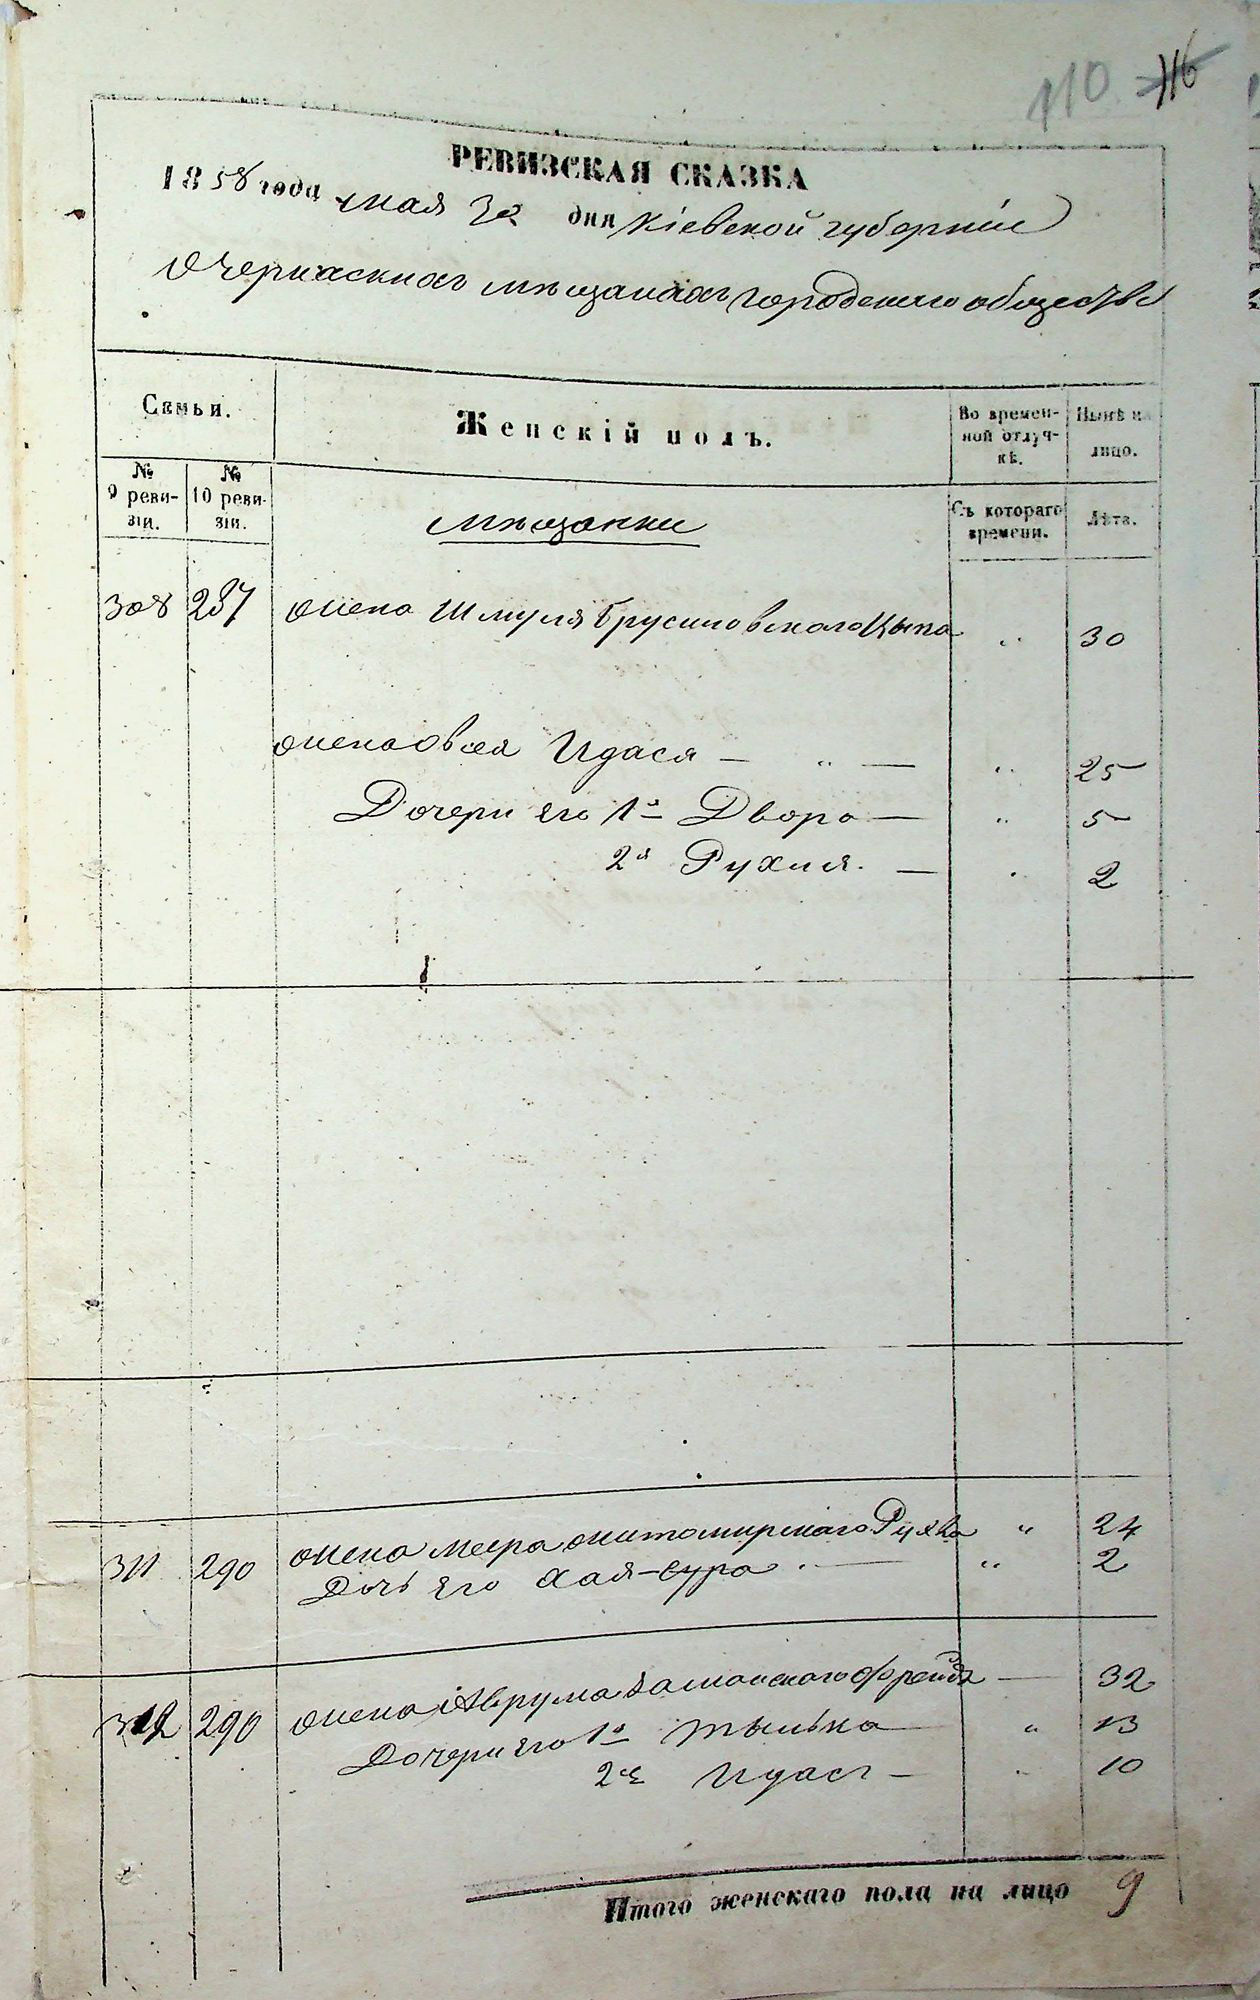 110 116
РЕВИЗСКАЯ СКАЗКА
1858 года мая 30 дня Кіевской губерніи
О черкаскихъ мѣщанахъ городскаго общества
Семьи.
Женскій полъ.
Во времен-
ной отлуч-
кѣ.
Нынѣ на
лицо.
№
9 реви-
зіи.
№
10 реви-
зіи.
Съ котораго
времени.
Лѣта.
мѣщанки
308 287 жена Шмуля Брусиловского Цыпа " 30
жена Овсея Идася — " — " 25
Дочери его 1я Двора — " 5
2я Рухля. — " 2
311 290 жена Меера житомирскаго Рухва " 24
Дочь его Хая-сура — " 2
312 290 жена Аврума Фрейда — 32
Дочери его 1я тылька " 13
2я Идася — " 10
Итого женскаго пола на лицо 9